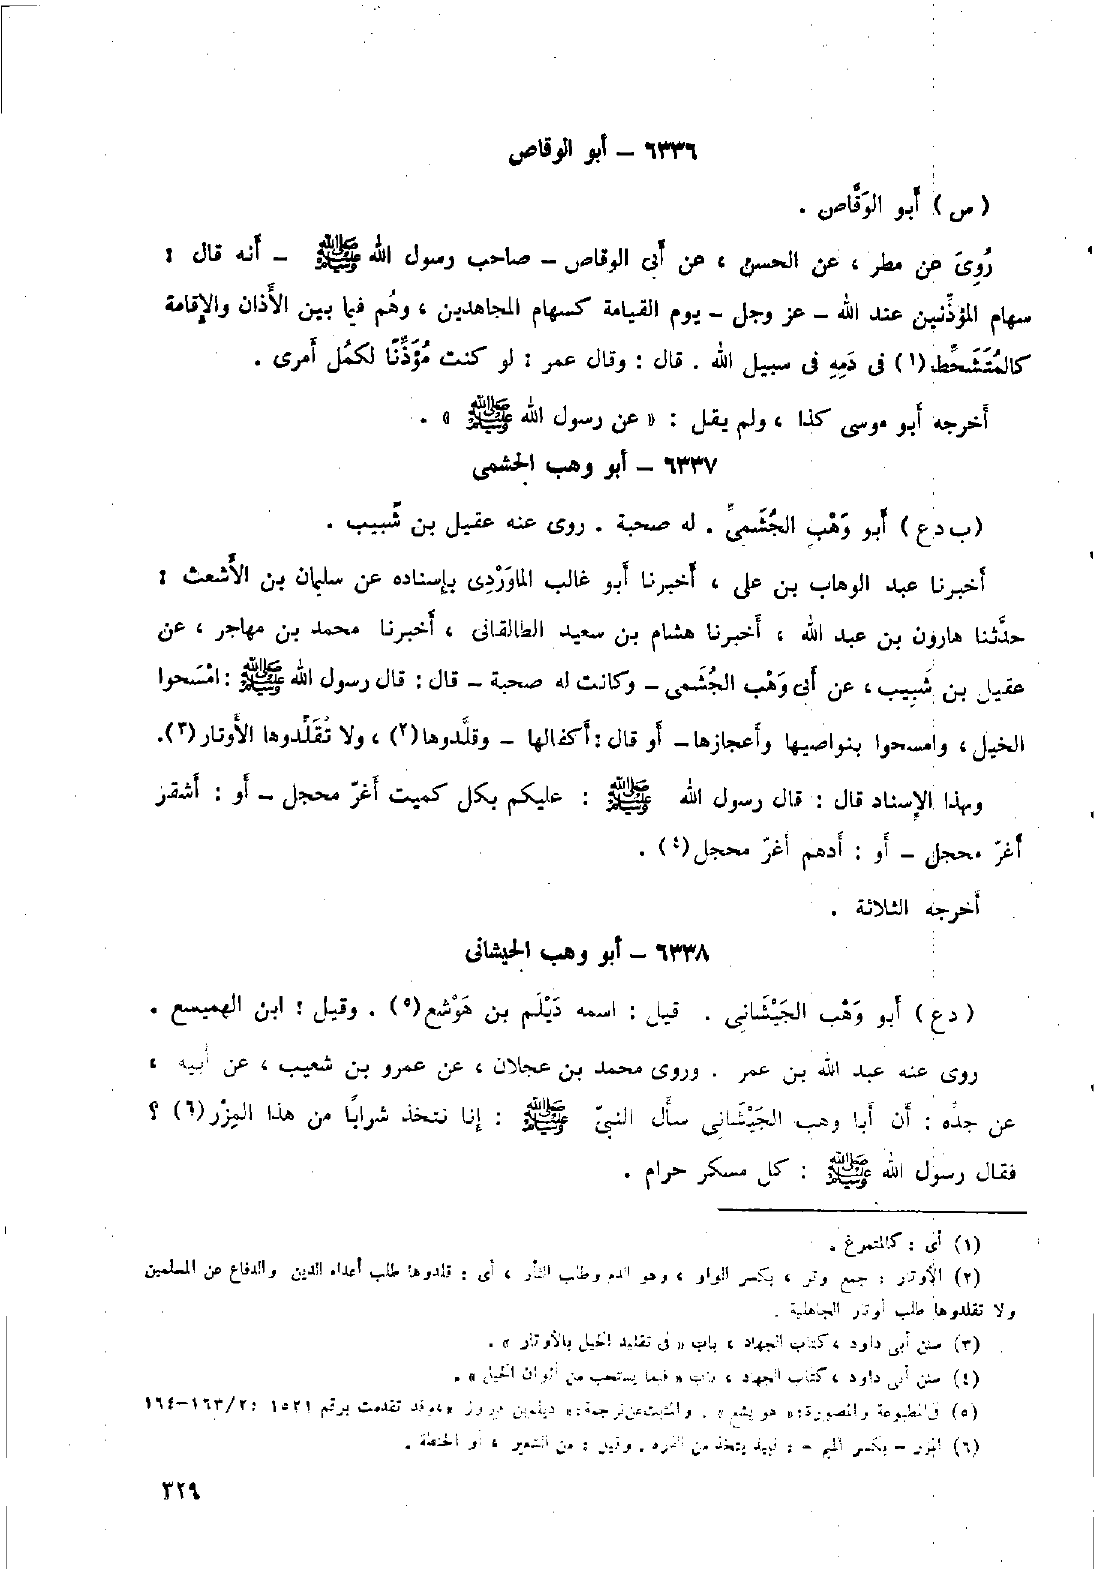 ٦٣٣٦ – أبو الوقاص
( س ) أَبو الوَقَّاص .
رُوِىَ عن مطر ، عن الحسن ، عن أَبى الوقاص – صاحب رسول الله ﷺ – أَنه قال :
سهام المؤذِّنين عند الله – عز وجل – يوم القيامة كسهام المجاهدين ، وهُم فيما بين الأَذان والإِقامة
كالمُتَشَحِّط (١) فى دَمِهِ فى سبيل الله . قال : وقال عمر : لو كنت مُؤَذِّنًا لكمُل أَمرى .
أَخرجه أَبو موسى كذا ، ولم يقل : « عن رسول الله ﷺ » .
٦٣٣٧ – أبو وهب الجشمى
( ب د ع ) أَبو وَهْب الجُشَمىِّ . له صحبة . روى عنه عقيل بن شَبيب .
أَخبرنا عبد الوهاب بن على ، أَخبرنا أَبو غالب الماوَرْدِى بإِسناده عن سليمان بن الأَشعث :
حدَّثنا هارون بن عبد الله ، أَخبرنا هشام بن سعيد الطالقانى ، أَخبرنا محمد بن مهاجر ، عن
عقيل بن شبيب ، عن أَبى وَهْب الجُشَمى – وكانت له صحبة – قال : قال رسول الله ﷺ : امْسَحوا
الخيل ، وامسحوا بنواصيها وأَعجازها – أَو قال : أَكفالها – وقلَّدوها (٢) ، ولا تُقَلِّدوها الأَوتار (٣).
وبهذا الإِسناد قال : قال رسول الله ﷺ : عليكم بكل كميت أَغرّ محجل – أَو : أَشقر
أَغرّ محجل – أَو : أَدهم أَغرّ محجل (٤) .
أَخرجه الثلاثة .
٦٣٣٨ – أبو وهب الجيشانى
( د ع ) أَبو وَهْب الجَيْشَانِى . قيل : اسمه دَيْلَم بن هَوْشع (٥) . وقيل : ابن الهميسع .
روى عنه عبد الله بن عمر . وروى محمد بن عجلان ، عن عمرو بن شعيب ، عن أَبيه ،
عن جدِّه : أَن أَبا وهب الجَيْشَانِى سأَل النبىّ ﷺ : إِنا نتخذ شرابًا من هذا المِزْر (٦) ؟
فقال رسول الله ﷺ : كل مسكر حرام .
(١) أى : كالمتمرغ .
(٢) الأوتار : جمع وتر ، بكسر الواو ، وهو الدم وطلب الثأر ، أى : قلدوها طلب أعداء الدين والدفاع عن المسلمين
ولا تقلدوها طلب أوتار الجاهلية .
(٣) سنن أبى داود ، كتاب الجهاد ، باب « فى تقليد الخيل بالأوتار » .
(٤) سنن أبى داود ، كتاب الجهاد ، باب « فيما يستحب من ألوان الخيل » .
(٥) فى المطبوعة والمصورة : « هو يشع » . والمثبت عن ترجمة : « ديلم بن فيروز » ، وقد تقدمت برقم ١٥٢١ : ٢/١٦٣–١٦٤
(٦) المزر – بكسر الميم – : نبيذ يتخذ من الذرة . وقيل : من الشعير ، أو الحنطة .
٣٢٩